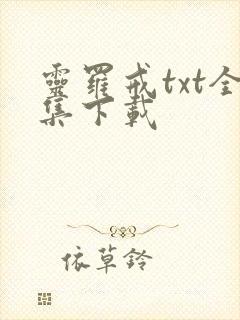 靈羅戒txt全
集下載
依草鈴